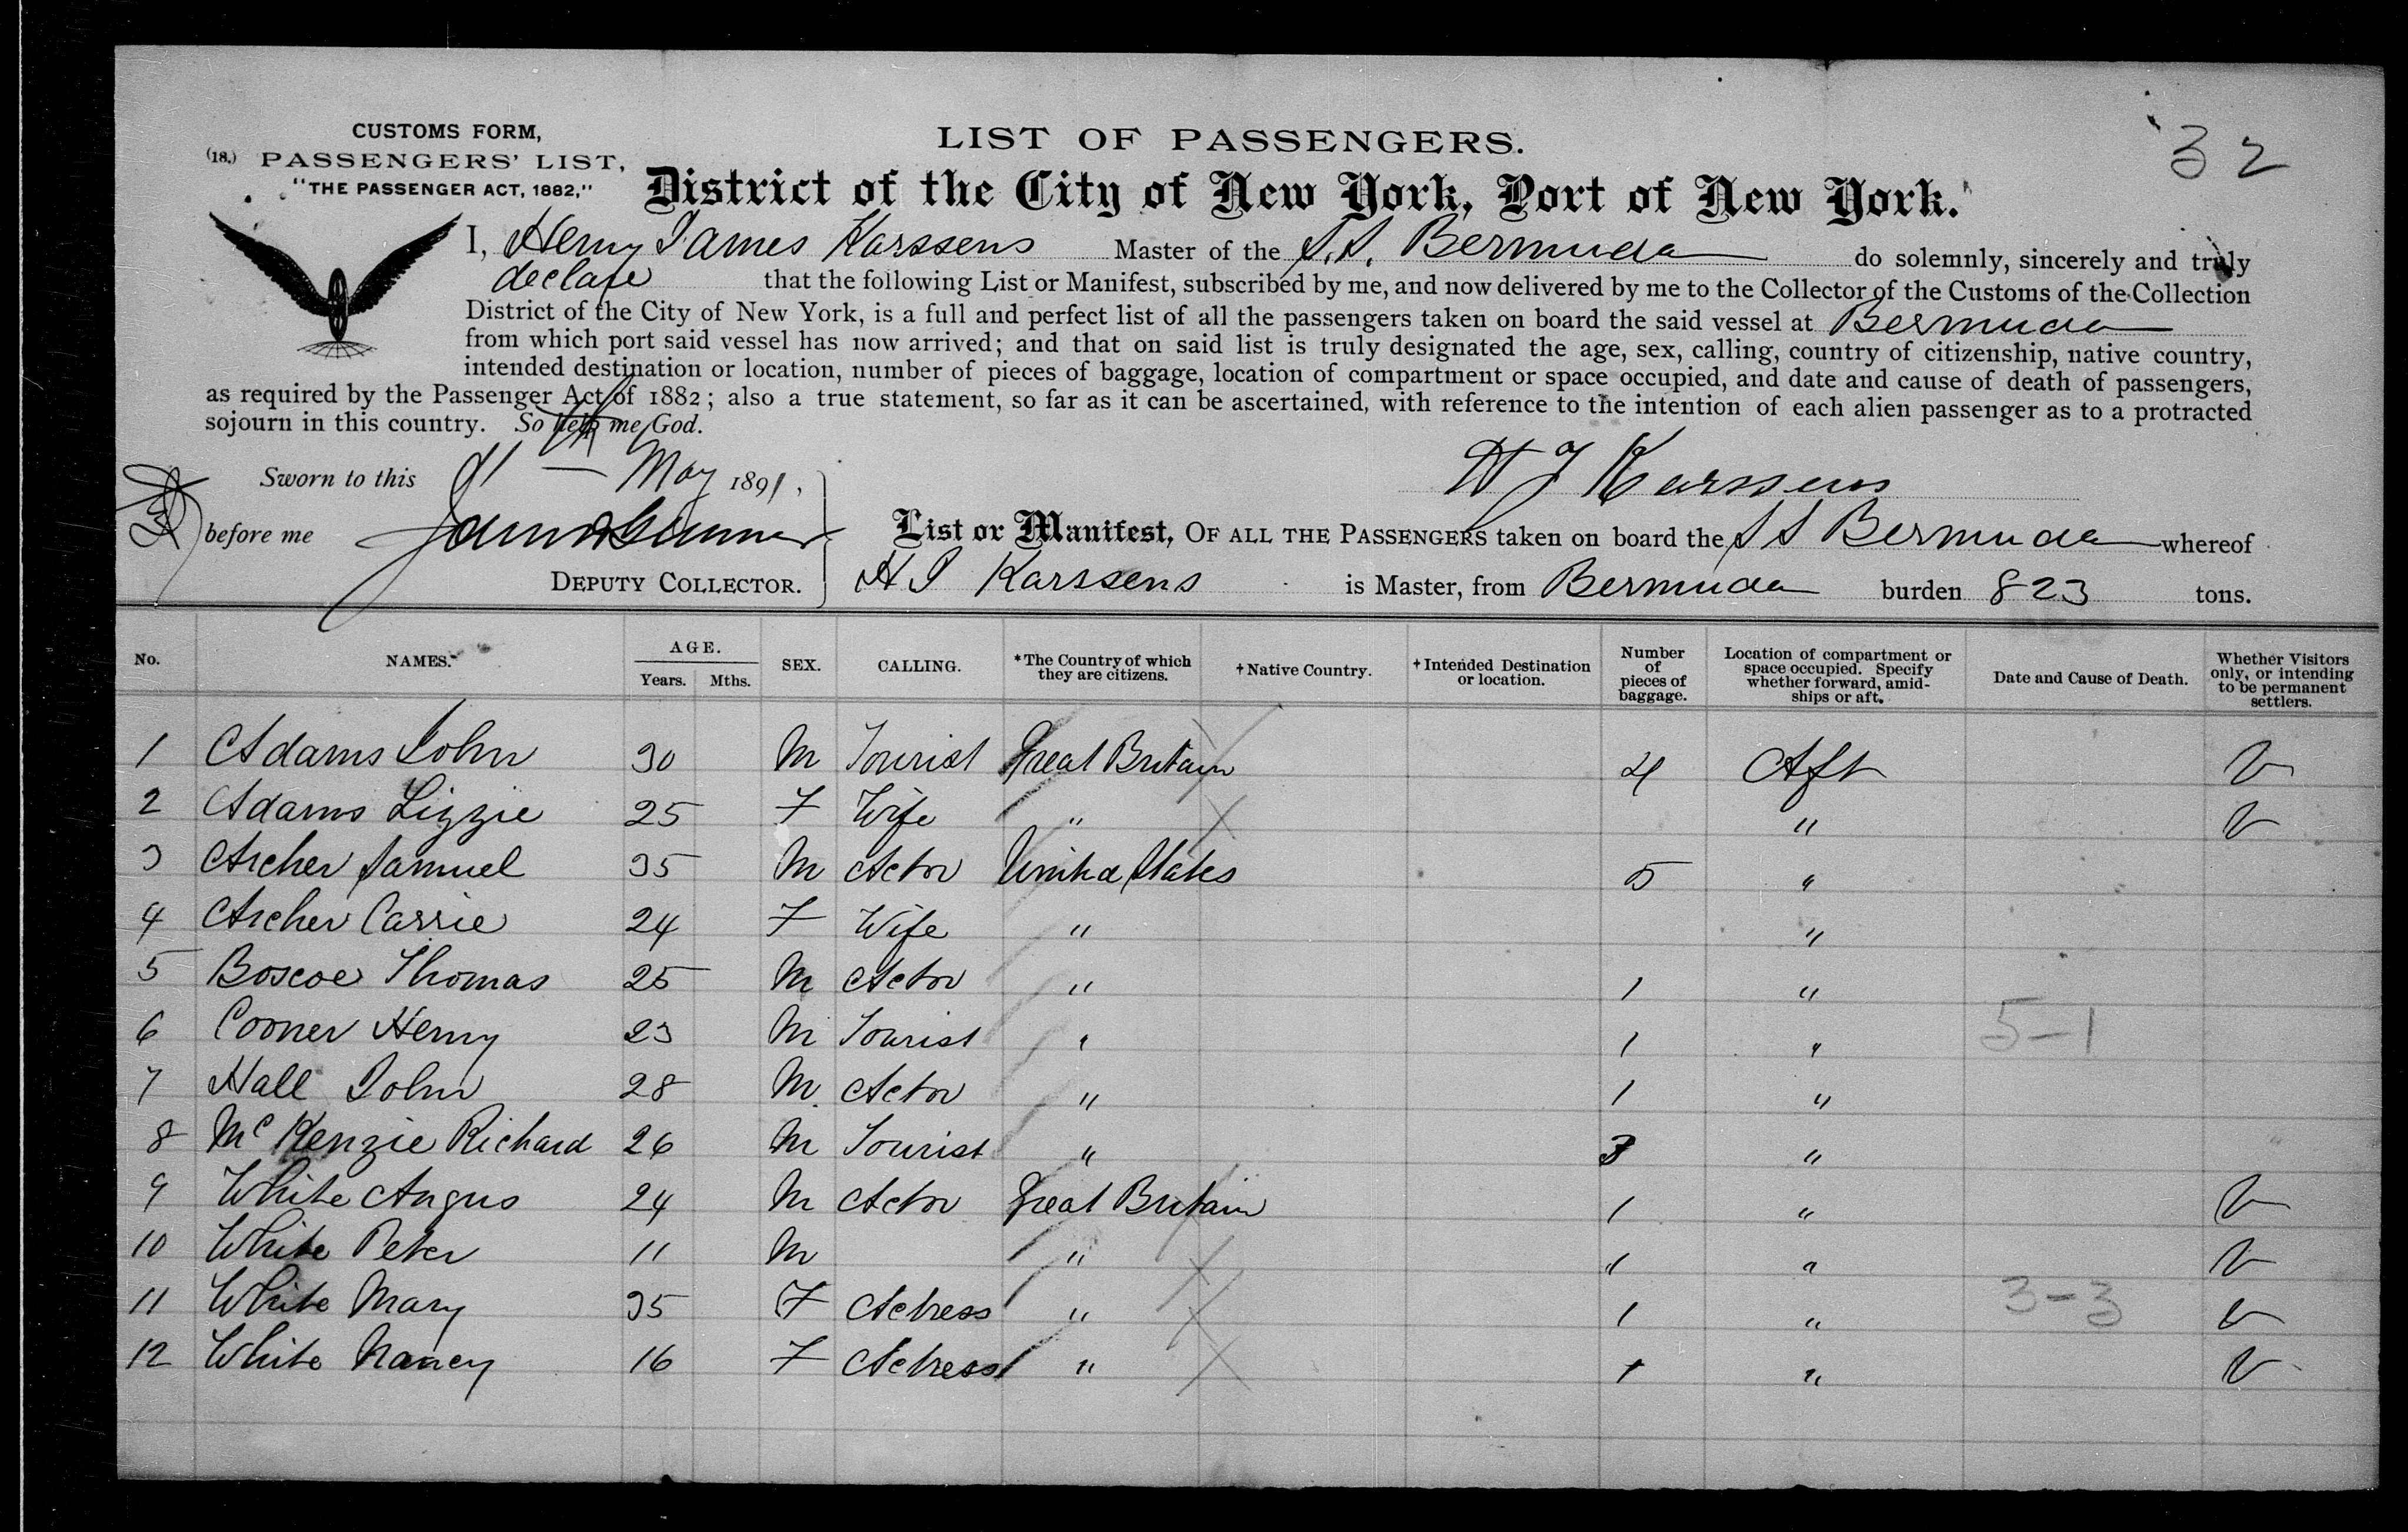 32
CUSTOMS FORM,
(18.) PASSENGERS' LIST,
"THE PASSENGER ACT, 1882,"
LIST OF PASSENGERS.
District of the City of New York, Port of New York.
I, Henry James Karssens Master of the S.S. Bermuda do solemnly, sincerely and truly
declare that the following List or Manifest, subscribed by me, and now delivered by me to the Collector of the Customs of the Collection
District of the City of New York, is a full and perfect list of all the passengers taken on board the said vessel at Bermuda
from which port said vessel has now arrived; and that on said list is truly designated the age, sex, calling, country of citizenship, native country,
intended destination or location, number of pieces of baggage, location of compartment or space occupied, and date and cause of death of passengers,
as required by the Passenger Act of 1882; also a true statement, so far as it can be ascertained, with reference to the intention of each alien passenger as to a protracted
sojourn in this country. So help me God.
H J Karssens
Sworn to this May 1891,
before me
DEPUTY COLLECTOR.
List or Manifest, OF ALL THE PASSENGERS taken on board the S S Bermuda whereof
H J Karssens is Master, from Bermuda burden 823 tons.
No. NAMES. AGE. Years. Mths. SEX. CALLING. *The Country of which they are citizens. †Native Country. †Intended Destination or location. Number of pieces of baggage. Location of compartment or space occupied. Specify whether forward, amidships or aft. Date and Cause of Death. Whether Visitors only, or intending to be permanent settlers.
1 Adams John 30 M Tourist Great Britain 4 Aft V
2 Adams Lizzie 25 F Wife " " V
3 Archer Samuel 35 M Actor United States 5 "
4 Archer Carrie 24 F Wife " "
5 Boscoe Thomas 25 M Actor " 1 "
6 Cooner Henry 23 M Tourist " 1 " 5-1
7 Hall John 28 M Actor " 1 "
8 McKenzie Richard 26 M Tourist " 3 "
9 White Angus 24 M Actor Great Britain 1 " V
10 White Peter 11 M " " " V
11 White Mary 35 F Actress " 1 " 3-3 V
12 White Nancy 16 F Actress " 1 " V